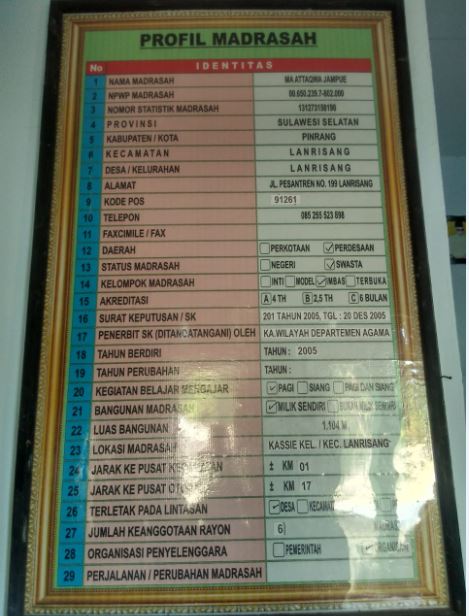 PROFIL MADRASAH
No IDENTITAS
1 NAMA MADRASAH MA ATTAQWA JAMPUE
2 NPWP MADRASAH 00.650.239.7-802.000
3 NOMOR STATISTIK MADRASAH 131273150190
4 PROVINSI SULAWESI SELATAN
5 KABUPATEN / KOTA PINRANG
6 KECAMATAN LANRISANG
7 DESA / KELURAHAN LANRISANG
8 ALAMAT JL. PESANTREN NO. 199 LANRISANG
9 KODE POS 91261
10 TELEPON 085 255 523 698
11 FAXCIMILE / FAX
12 DAERAH PERKOTAAN PERDESAAN
13 STATUS MADRASAH NEGERI SWASTA
14 KELOMPOK MADRASAH INTI MODEL IMBAS TERBUKA
15 AKREDITASI A 4 TH B 2,5 TH C 6 BULAN
16 SURAT KEPUTUSAN / SK 201 TAHUN 2005, TGL : 20 DES 2005
17 PENERBIT SK (DITANDATANGANI) OLEH KA.WILAYAH DEPARTEMEN AGAMA
18 TAHUN BERDIRI TAHUN : 2005
19 TAHUN PERUBAHAN TAHUN :
20 KEGIATAN BELAJAR MENGAJAR PAGI SIANG PAGI DAN SIANG
21 BANGUNAN MADRASAH MILIK SENDIRI BUKAN MILIK SENDIRI
22 LUAS BANGUNAN 1.104 M
23 LOKASI MADRASAH KASSIE KEL. / KEC. LANRISANG
24 JARAK KE PUSAT KECAMATAN ± KM 01
25 JARAK KE PUSAT ± KM 17
26 TERLETAK PADA LINTASAN DESA
27 JUMLAH KEANGGOTAAN RAYON 6
28 ORGANISASI PENYELENGGARA PEMERINTAH
29 PERJALANAN / PERUBAHAN MADRASAH